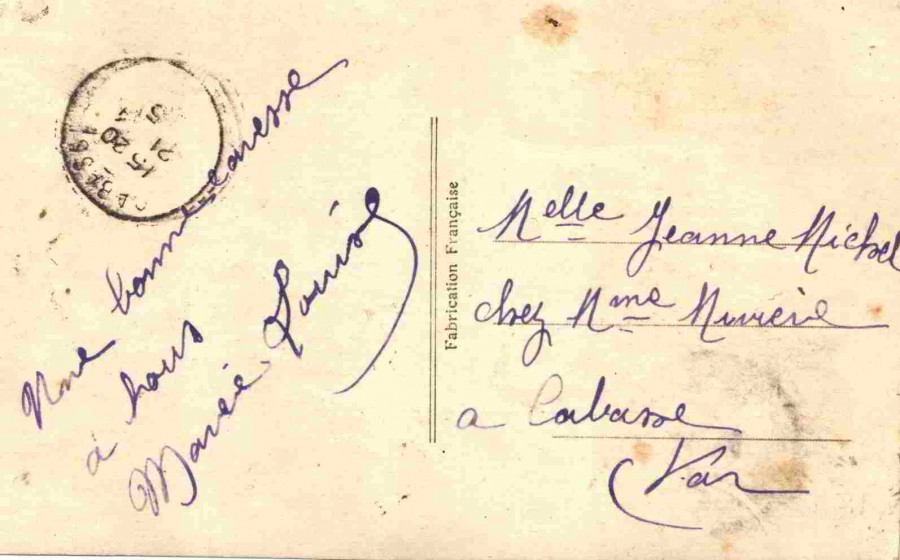 Une bonne caresse
à tous
Marie Louise
CABASSE
15 20
21
Fabrication Française
Melle Jeanne Michel
chez Mme
a Cabasse
Var